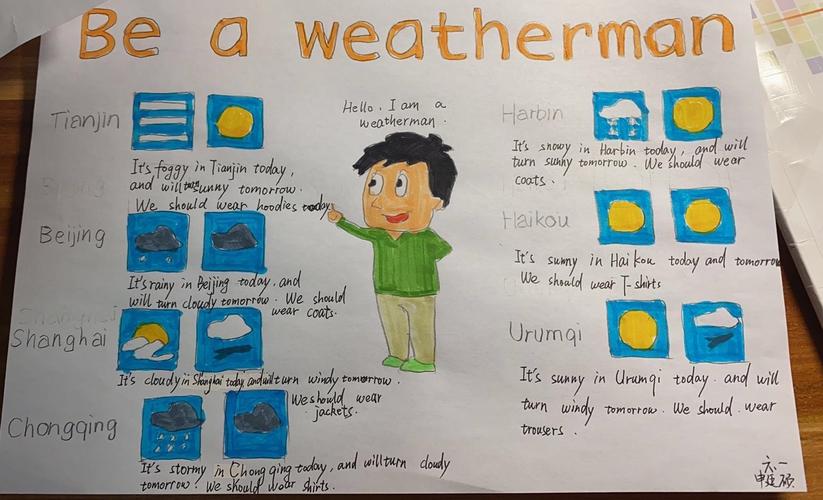 Be a weatherman
Hello. I am a
weatherman.
Tianjin
It's foggy in Tianjin today,
and will turn sunny tomorrow.
We should wear hoodies today
Beijing
It's rainy in Beijing today, and
will turn cloudy tomorrow. We should
wear coats.
Shanghai
It's cloudy in Shanghai today, and will turn windy tomorrow.
We should wear
jackets.
Chongqing
It's stormy in Chongqing today, and will turn cloudy
tomorrow. We should wear shirts.
Harbin
It's snowy in Harbin today, and will
turn sunny tomorrow. We should wear
coats.
Haikou
It's sunny in Haikou today and tomorrow
We should wear T-shirts
Urumqi
It's sunny in Urumqi today. and will
turn windy tomorrow. We should. wear
trousers.
六一